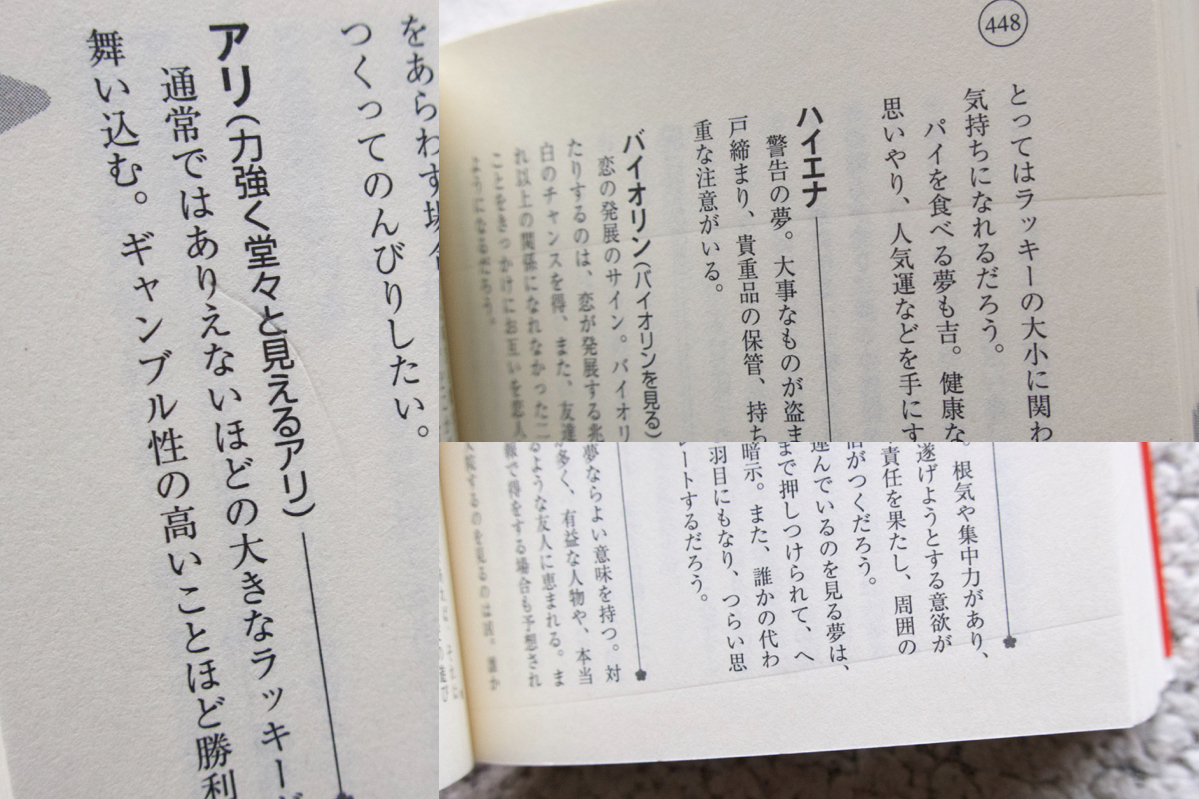 をあらわす場
つくってのんびりしたい。
アリ（力強く堂々と見えるアリ）
通常ではありえないほどの大きなラッキー
舞い込む。ギャンブル性の高いことほど勝利
448
とってはラッキーの大小に関わ
気持ちになれるだろう。
パイを食べる夢も吉。健康な
思いやり、人気運などを手にす
ハイエナ
警告の夢。大事なものが盗ま
戸締まり、貴重品の保管、持ち
重な注意がいる。
バイオリン（バイオリンを見る）
恋の発展のサイン。バイオリ
たりするのは、恋が発展する兆
白のチャンスを得、また、友達
れ以上の関係になれなかった二
ことをきっかけにお互いを恋人
ようになるだろう。
。根気や集中力があり、
遂げようとする意欲が
責任を果たし、周囲の
信がつくだろう。
運んでいるのを見る夢は、
まで押しつけられて、へ
暗示。また、誰かの代わ
羽目にもなり、つらい思
レートするだろう。
夢ならよい意味を持つ。対
が多く、有益な人物や、本当
るような友人に恵まれる。ま
報で得をする場合も予想され
するのを見るのは凶。誰か